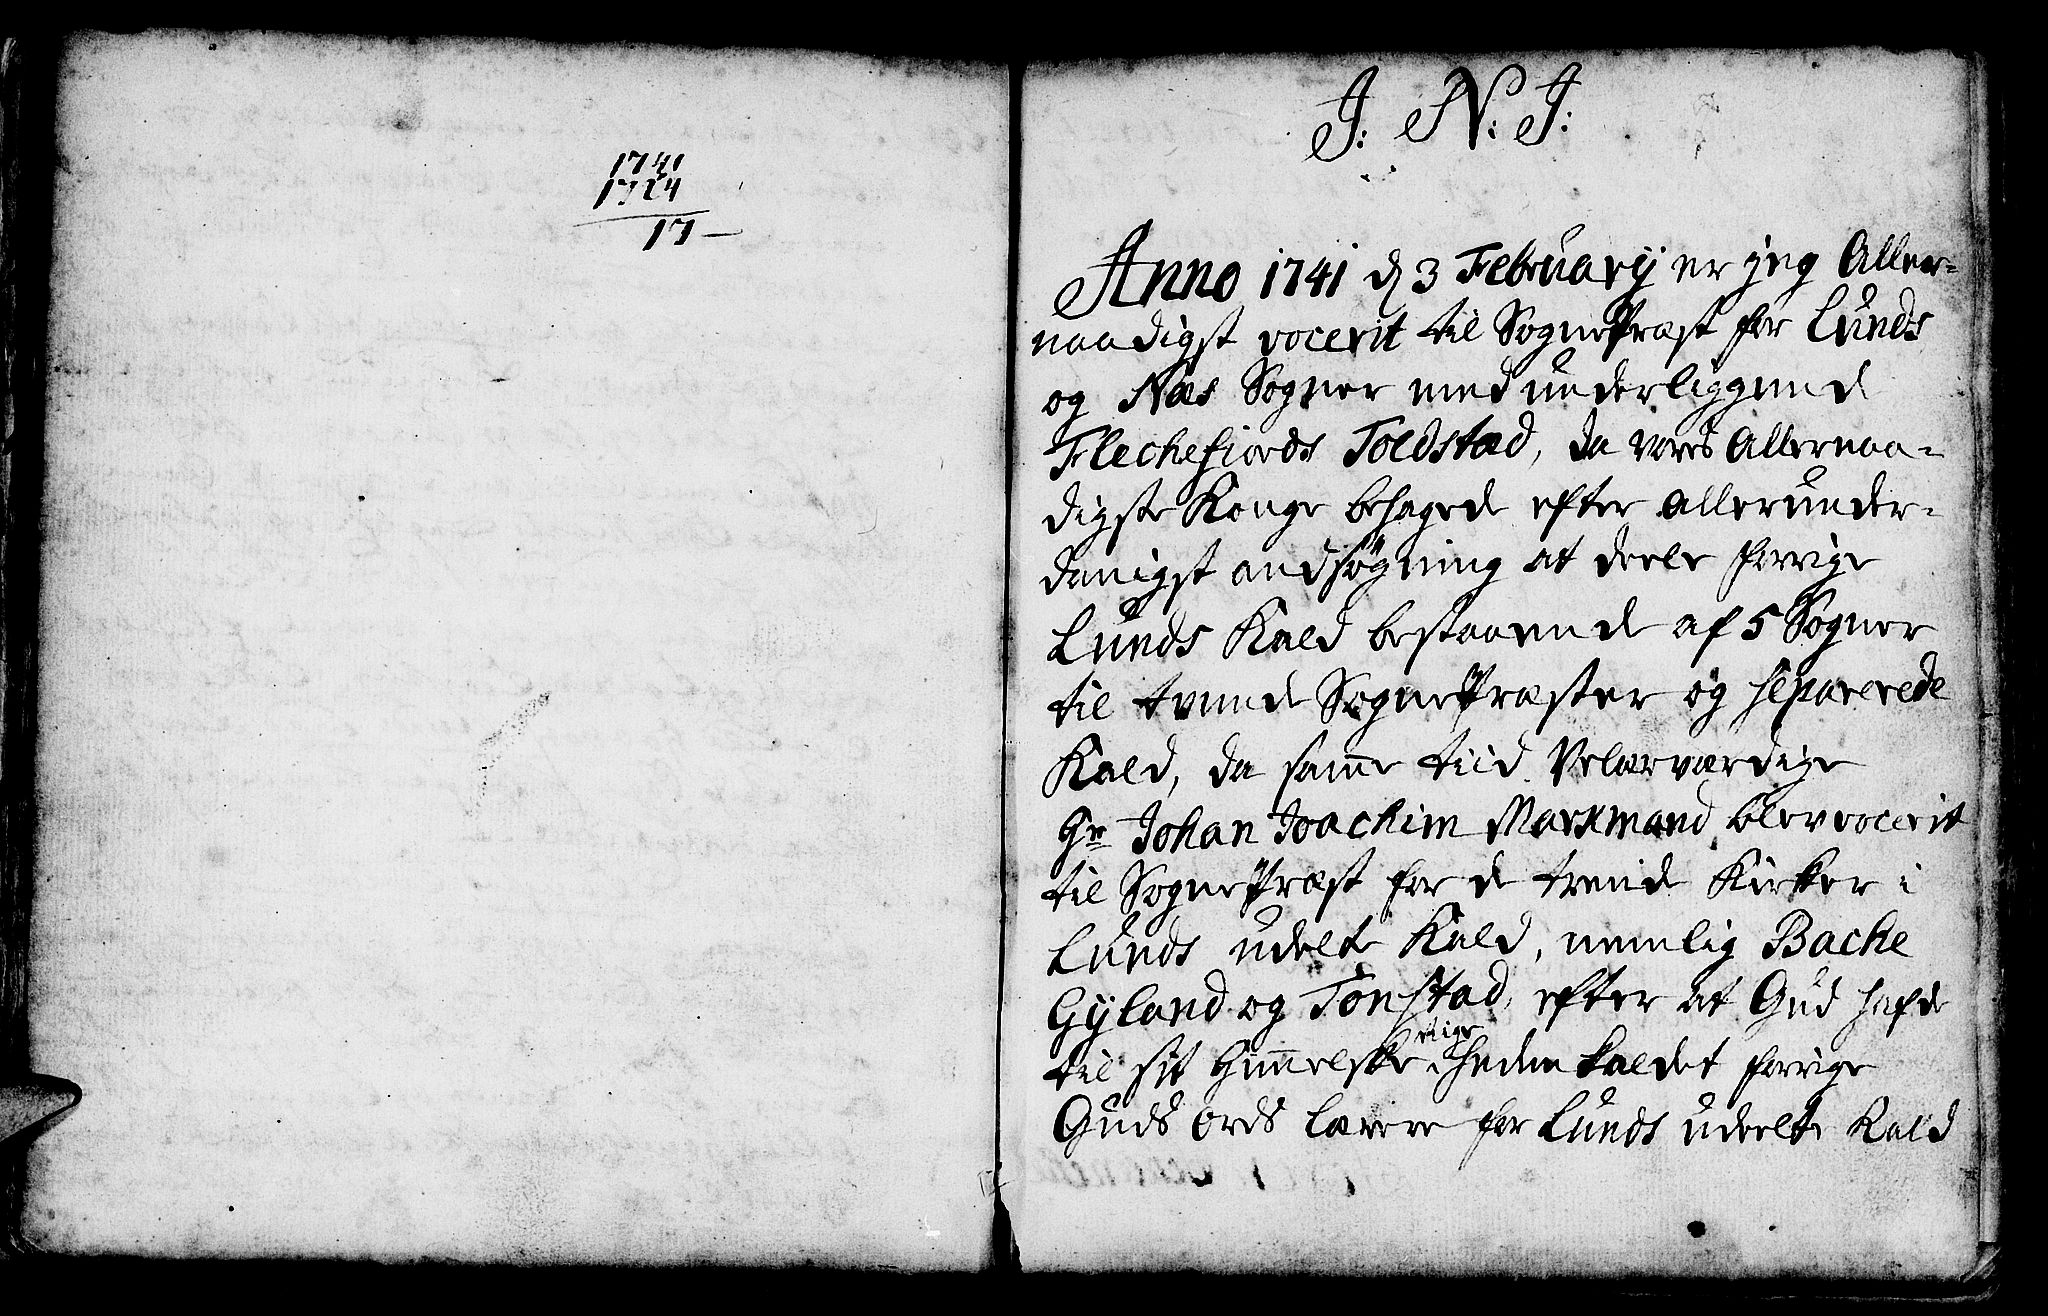 1741
1724
17 —
J: N: J:
Anno 1741 d 3 February er jeg Aller=
naadigst vocerit til SognePræst for Lunds
og Næs Sogner med underliggende
Flechefiords Toldstæd, da vores Allernaa=
digste Konge behagede efter allerunder=
danigst andsøgning at deele forrige
Lunds Kald bestaaende af 5 Sogner
til tvende SognePræster og separerede
Kald, da samme tiid Velærværdige
Hr Johan Joachim Markmand blev vocerit
til SognePræst for de trende Kirker i
Lunds udelte Kald, nemlig Backe
Gyland og Tonstad, efter at Gud hafde
til sit Himmelske rige heden kaldet forrige
Guds Ords Lærere for Lunds udeelte Kald